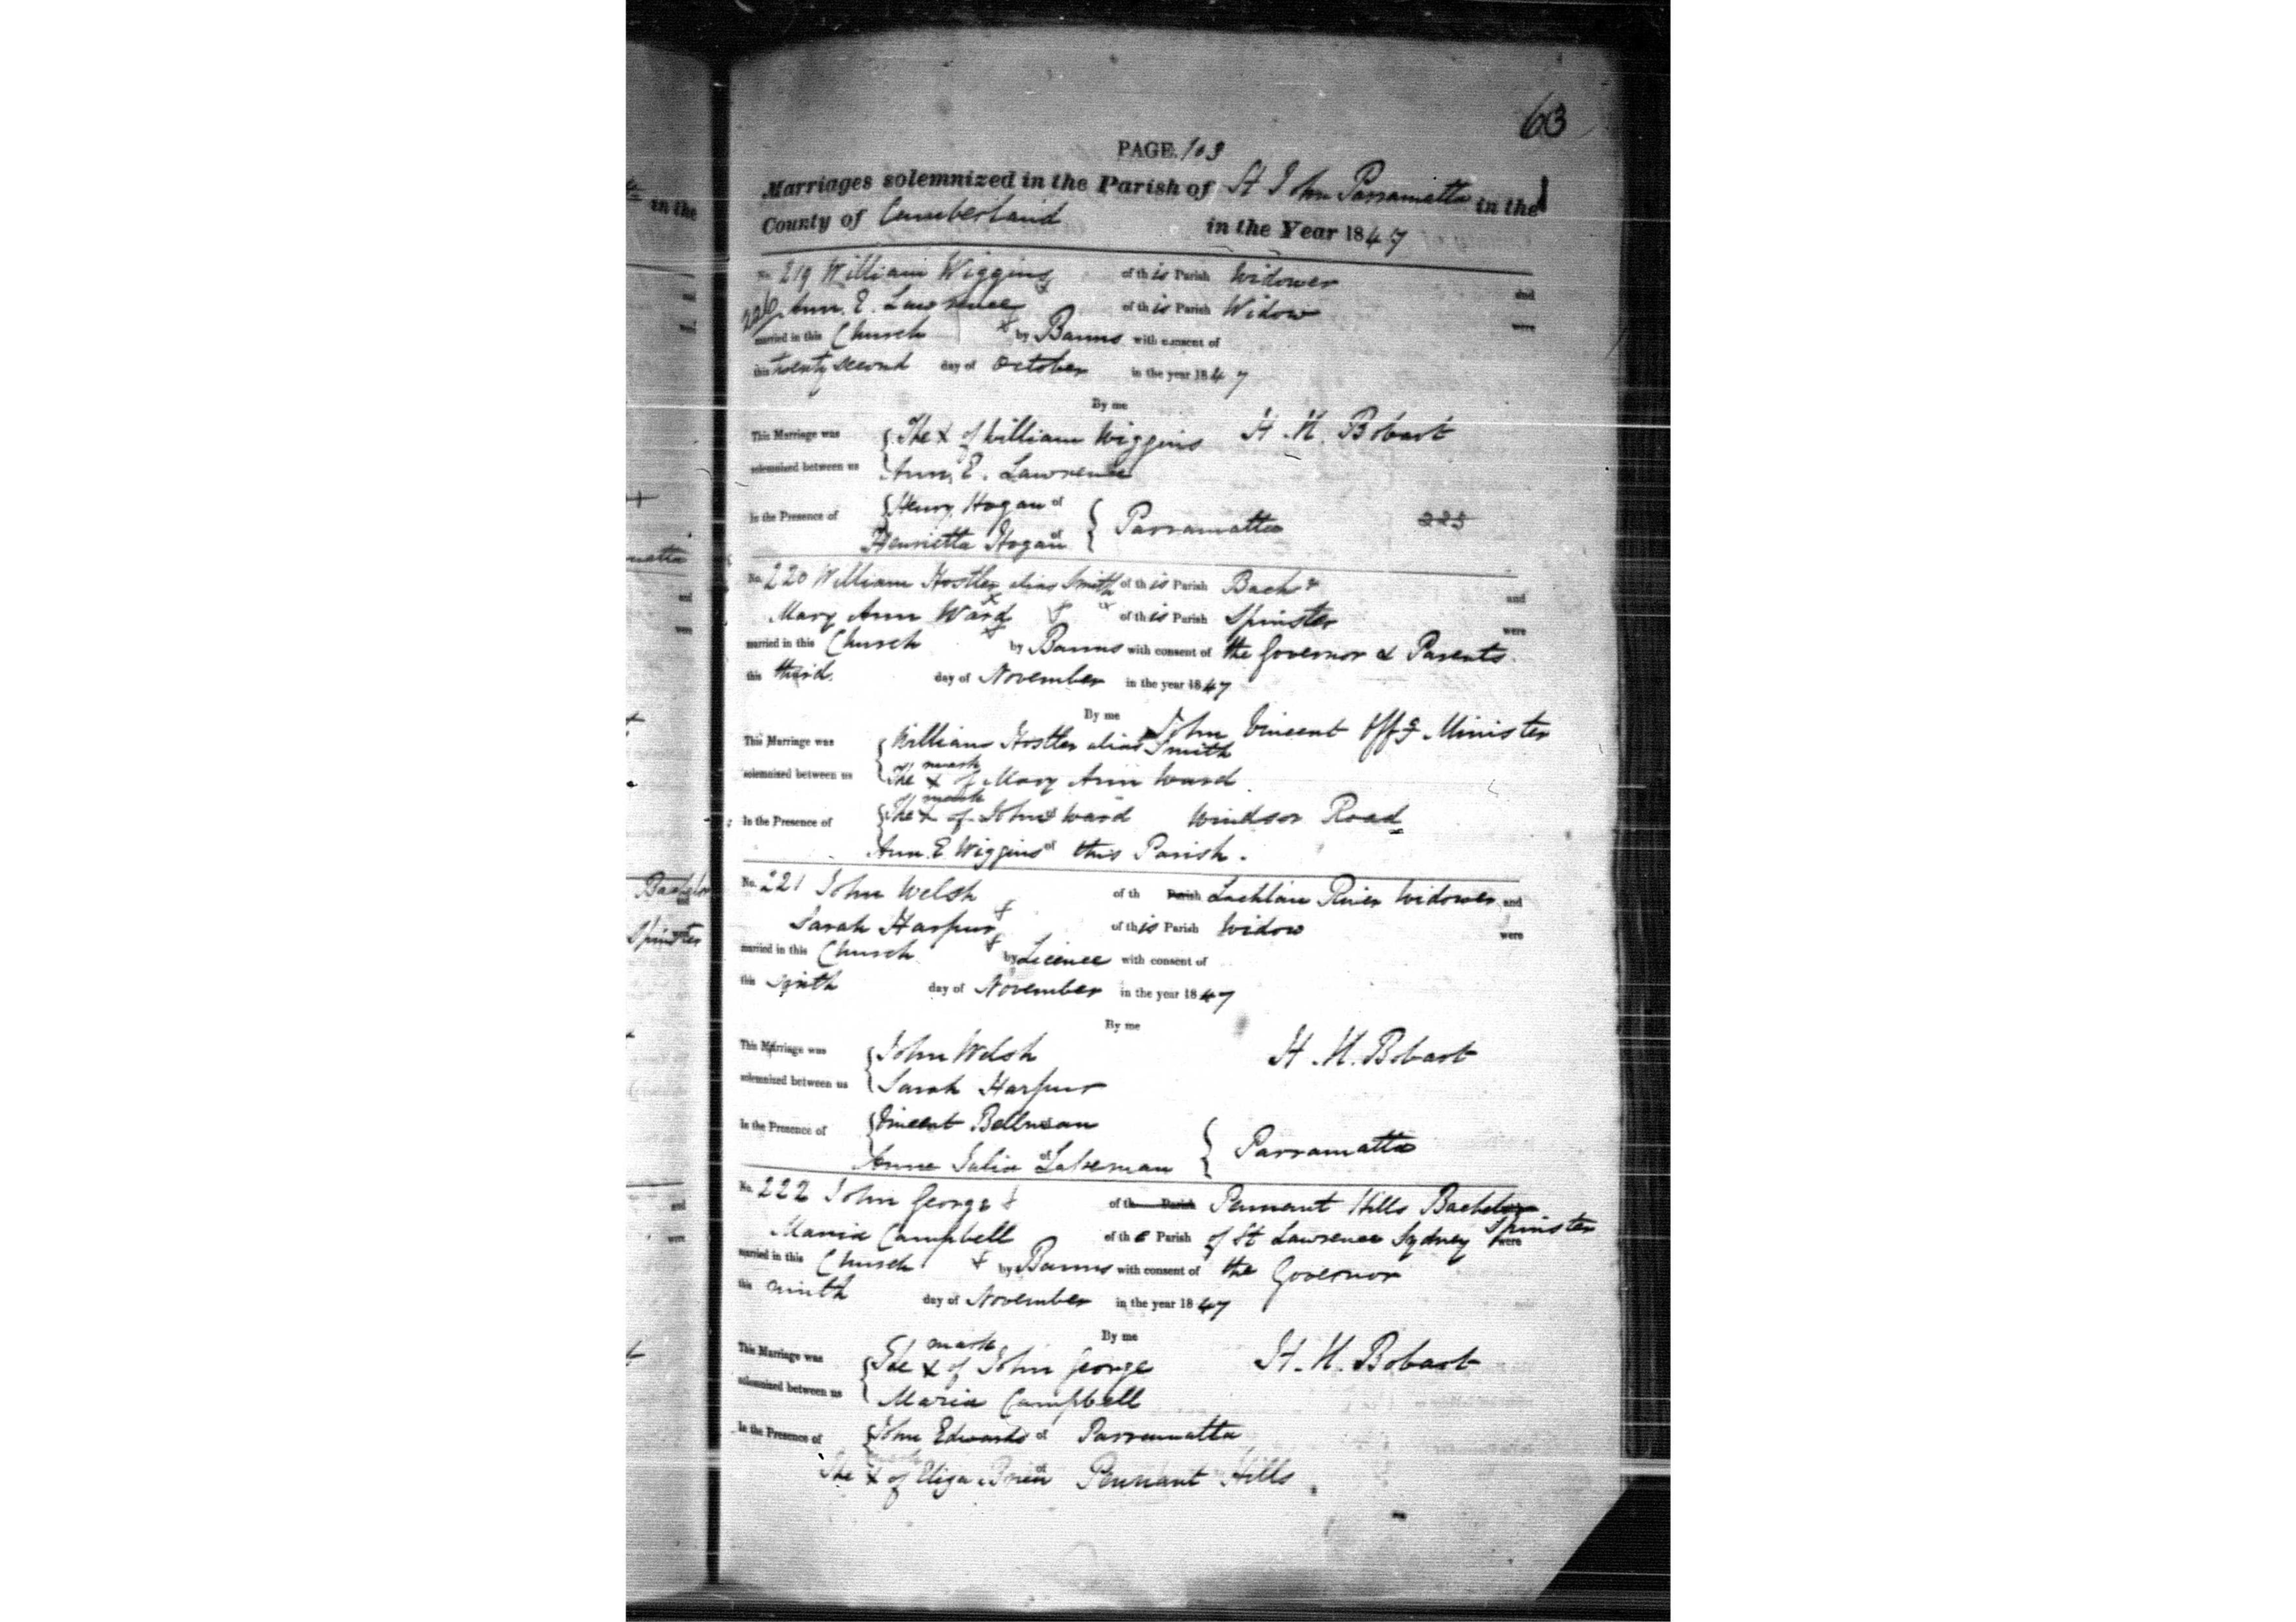 63
PAGE. 103
Marriages solemnized in the Parish of St John Parramatta in the
County of Cumberland in the Year 1847
No. 219 William Wiggins of this Parish Widower and
Ann. E. Lawrence of this Parish Widow were
married in this Church by Banns with consent of
this twenty second day of October in the year 1847
By me
This Marriage was The X of William Wiggins H. H. Bobart
solemnized between us Ann, E. Lawrence
In the Presence of Henry Hogan of
Henrietta Hogan of Parramatta 225
No. 220 William Hostler alias Smith of this Parish Bachr and
Mary Ann Ward of this Parish Spinster were
married in this Church by Banns with consent of the Governor & Parents.
this third. day of November in the year 1847
By me John Vincent Offg Minister
This Marriage was William Hostler alias Smith
solemnized between us The mark X of Mary Ann Ward.
In the Presence of The mark X of John Ward Windsor Road
Ann. E Wiggins of this Parish.
No. 221 John Welsh of th Parish Lachlan River Widower and
Sarah Harpur of this Parish Widow were
married in this Church by Licence with consent of
this day of November in the year 1847
By me
This Marriage was John Welsh H. H. Bobart
solemnized between us Sarah Harpur
In the Presence of Vincent
Anne Julia of Parramatta
No. 222 John George of th Parish Pennant Hills Bachelor
Maria Campbell of the Parish of St Lawrence Sydney Spinster were
married in this Church by Banns with consent of the Governor
this ninth day of November in the year 1847
By me
This Marriage was The mark X of John George H. H. Bobart
solemnized between us Maria Campbell
In the Presence of John Edwards of Parramatta
The X of Eliza Brien of Pennant Hills.